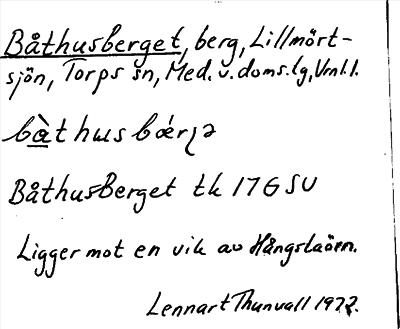 Båthusberget, berg, Lillmört-
sjön, Torps sn, Med. v. doms.lg, Vrnl.l.
Båthusberget tk 17G SV
Ligger mot en vik av Hångstaörn.
Lennart Thunvall 1972.